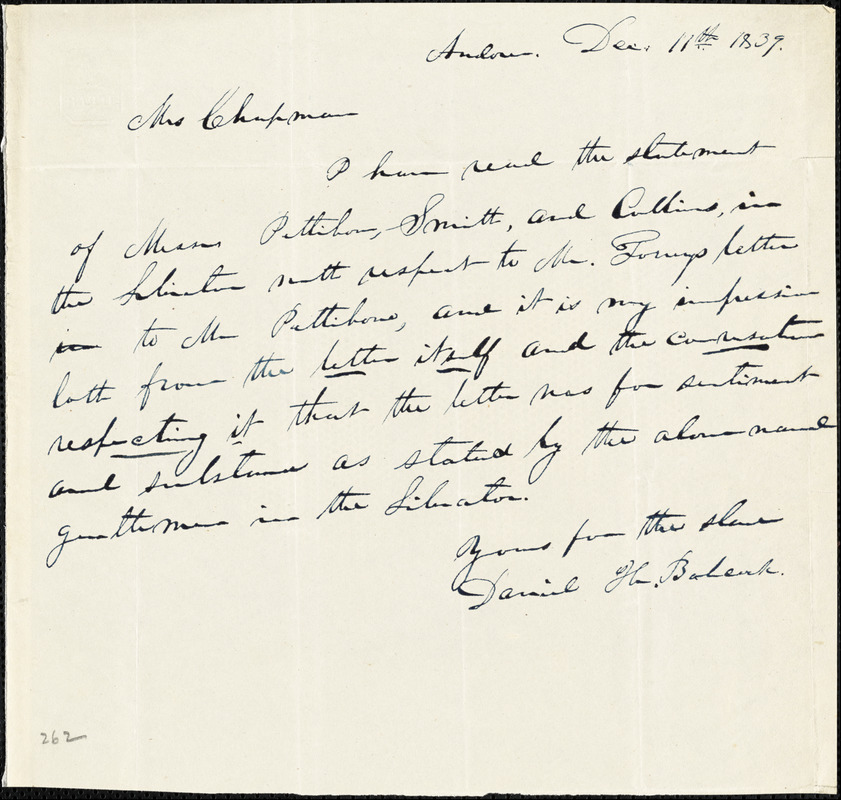 Andover. Dec. 11th 1839.
Mrs Chapman
I have read the statement
of Messrs Pettibone, Smith, and Collins, in
the Liberator with respect to Mr. Torreys letter
in to Mr Pettibone, and it is my impression
both from the letter itself and the conversation
respecting it that the letter was for sentiment
and substance as stated by the above named
gentlemen in the Liberator.
Yours for the slave
Daniel H. Babcock.
262